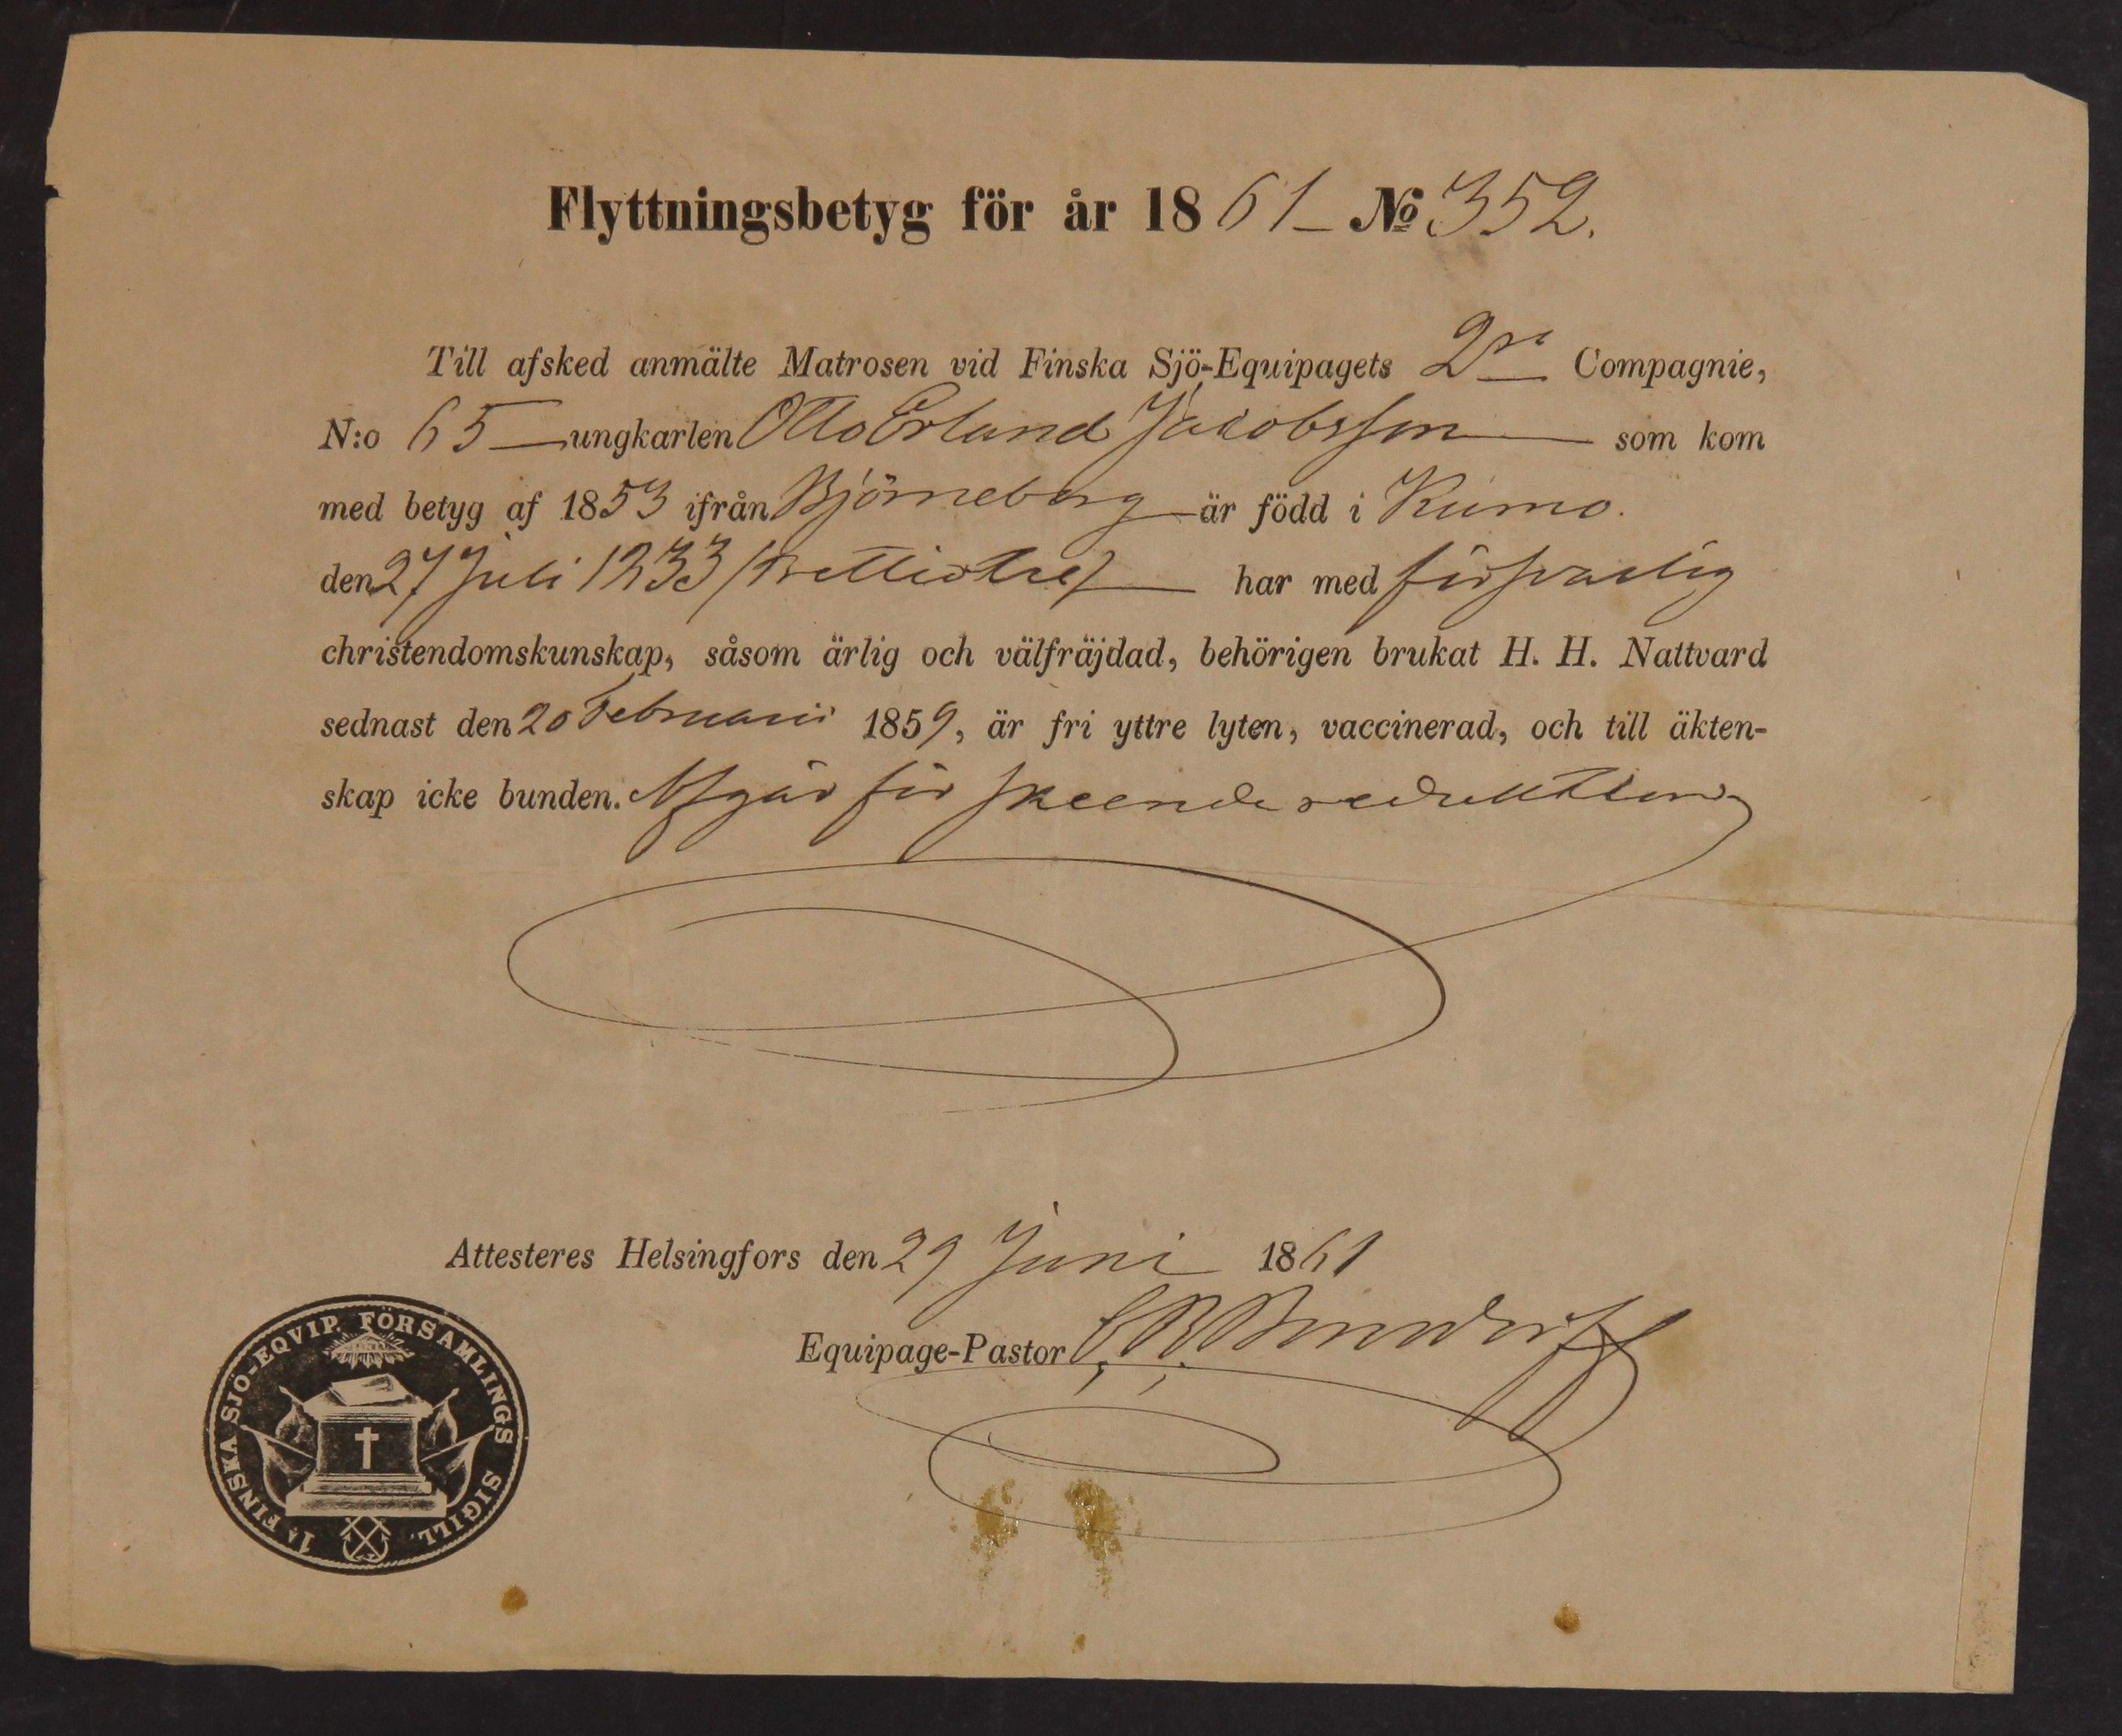 Flyttningsbetyg för år 1861 – No 352.
Till afsked anmälte Matrosen vid Finska Sjö-Equipagets 2ra Compagnie,
N:o 65 – ungkarlen Otto Erland Jakobsson – som kom
med betyg af 1853 ifrån Björneborg – är född i Kumo.
den 27 Juli 1833 /trettiotre/ – har med försvarlig
christendomskunskap, såsom ärlig och välfräjdad, behörigen brukat H. H. Nattvard
sednast den 20 Februarii 1859, är fri yttre lyten, vaccinerad, och till äkten-
skap icke bunden. Afgår för skeende reduktion
Attesteres Helsingfors den 29 Juni 1861
Equipage-Pastor
1A FINSKA SJÖ-EQVIP. FÖRSAMLINGS SIGILL.